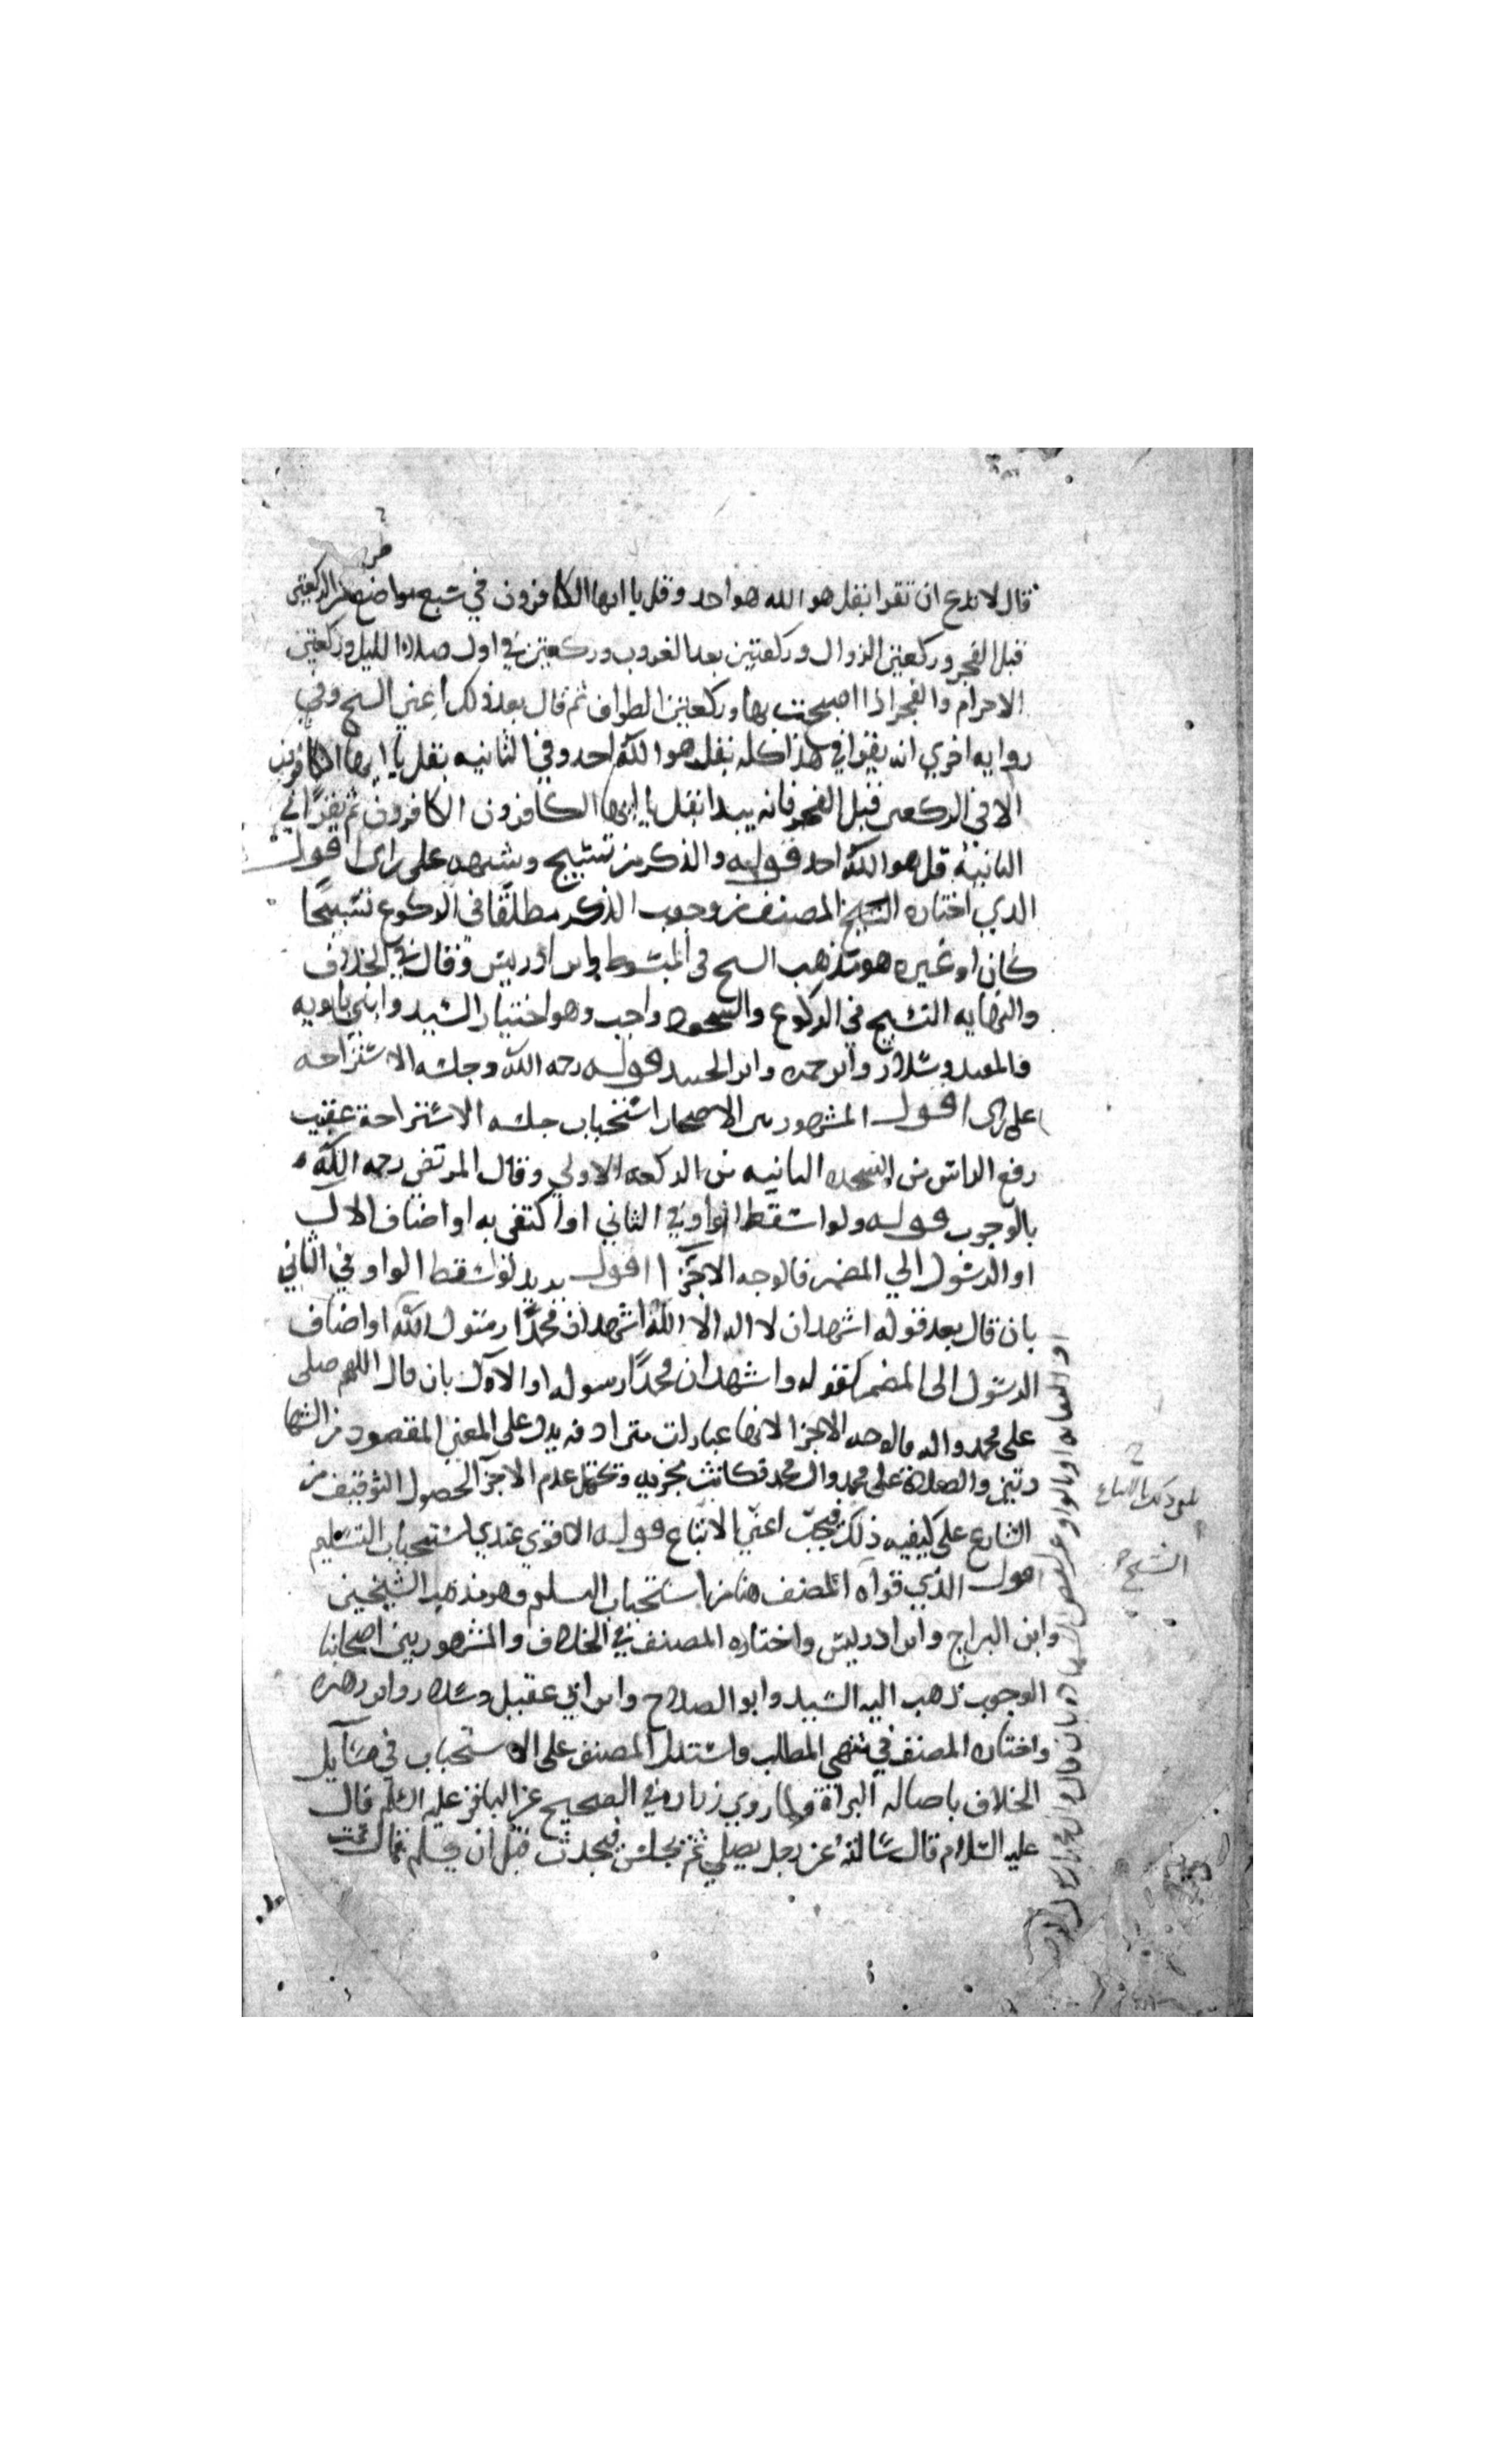 قال لا تدع ان تقرا بقل هو الله هو احد وقل يا ايها الكافرون في سبع مواضع في الركعتين
قبل الفجر وركعتين الزوال وركعتين بعد الغروب وركعتين في اول صلاة الليل وركعتين
الاحرام والفجر اذا اصبحت بها وركعتين الطواف ثم قال بعد ذلك اعني الشيخ وفي
روايه اخري انه يقرا في هذا كله بقل هو الله احد وفي الثانيه بقل يا ايها الكافرون
الا في الركعتين قبل الفجر فانه يبدا بقل يا ايها الكافرون الكافرون ثم يقرا في
الثانية قل هو الله احد قوله والذكر من تسبيح وشبهه على راي اقول
الذي اختاره الشيخ المصنف من وجوب الذكر مطلقا في الركوع تسبيحا
كان او غيره هو مذهب الشيخ في المبسوط وابن ادريس وقال في الخلاف
والنهايه التسبيح في الركوع والسجود واجب وهو اختيار السيد وابني بابويه
والمفيد وسلار وابن حمزه وابن الجنيد قوله رحمه الله وجلسه الاستراحه
على راي اقول المشهور بين الاصحاب استحباب جلسه الاستراحة عقيب
رفع الراس من السجده الثانيه من الركعه الاولي وقال المرتضي رحمه الله
بالوجوب قوله ولو اسقط الواو في الثاني او اكتفي به او اضاف الال
او الرسول الي المضمر فالوجه الاجزا اقول يريد لو اسقط الواو في الثاني
بان قال بعد قوله اشهد ان لا اله الا الله اشهد ان محمدا رسول الله او اضاف
الرسول الى المضمر كقوله واشهد ان محمدا رسوله او الال بان قال اللهم صلى
على محمد واله فالوجه الاجزا لانها عبارات مترادفه يدل على المعني المقصود من الشها
دتين والصلاة على محمد وال محمد فكانت مجزيه ويحتمل عدم الاجزا لحصول التوقيف من
الشارع على كيفيه ذلك فيجب اعني الاتباع قوله الاقوي عندي استحباب التسليم
اقول الذي قواه المصنف هنا من استحباب التسليم وهو مذهب الشيخين
وابن البراج وابن ادريس واختاره المصنف في الخلاف والمشهور بين اصحابنا
الوجوب ذهب اليه السيد وابو الصلاح وابن ابي عقيل وسلار وابن زهره
واختاره المصنف في منتهى المطلب واستدل المصنف على الاستحباب في مسايل
الخلاف باصاله البراة ولما روي زراره في الصحيح عن الباقر عليه السلم قال
عليه السلام قال سالته عن رجل يصلي ثم يجلس فيحدث قبل ان يسلم قال تمت
الشيخ